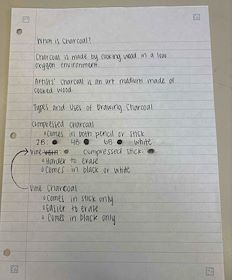 What is Charcoal?
Charcoal is made by cooking wood in a low
oxygen environment.
Artists' Charcoal is an art medium made of
cooked wood.
Types and Uses of Drawing Charcoal
Compressed Charcoal
Comes in both pencil or stick
2B 4B 6B White
Vine Compressed stick
Harder to erase
Comes in black or white
Vine Charcoal
Comes in stick only
Easier to erase
Comes in black only